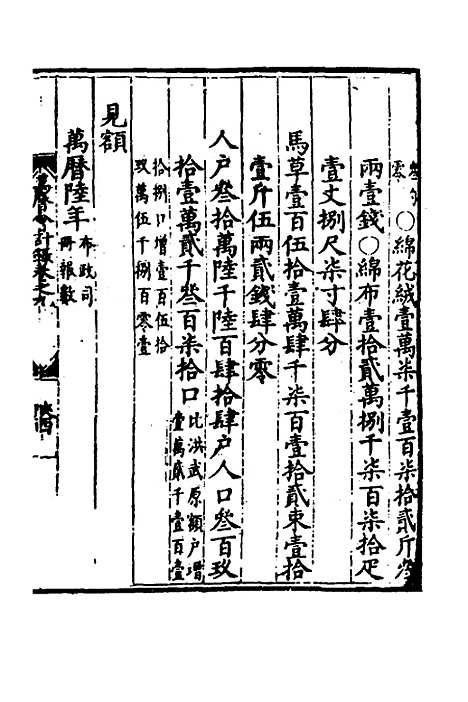 零○綿花絨壹萬柒千壹百柒拾貳斤叁
兩壹錢○綿布壹拾貳萬捌千柒百柒拾疋
壹丈捌尺柒寸肆分
馬草壹百伍拾壹萬肆千柒百壹拾貳束壹拾
壹斤伍兩貳錢肆分零
人户叁拾萬陸千陸百肆拾肆户人口叁百玖
拾壹萬貳千叁百柒拾口比洪武原額户增
壹萬貳千壹百壹
拾捌口增壹百伍拾
玖萬伍千捌百零壹
見額
萬曆陸年布政司
冊報數
萬曆會計録卷之九
陜西